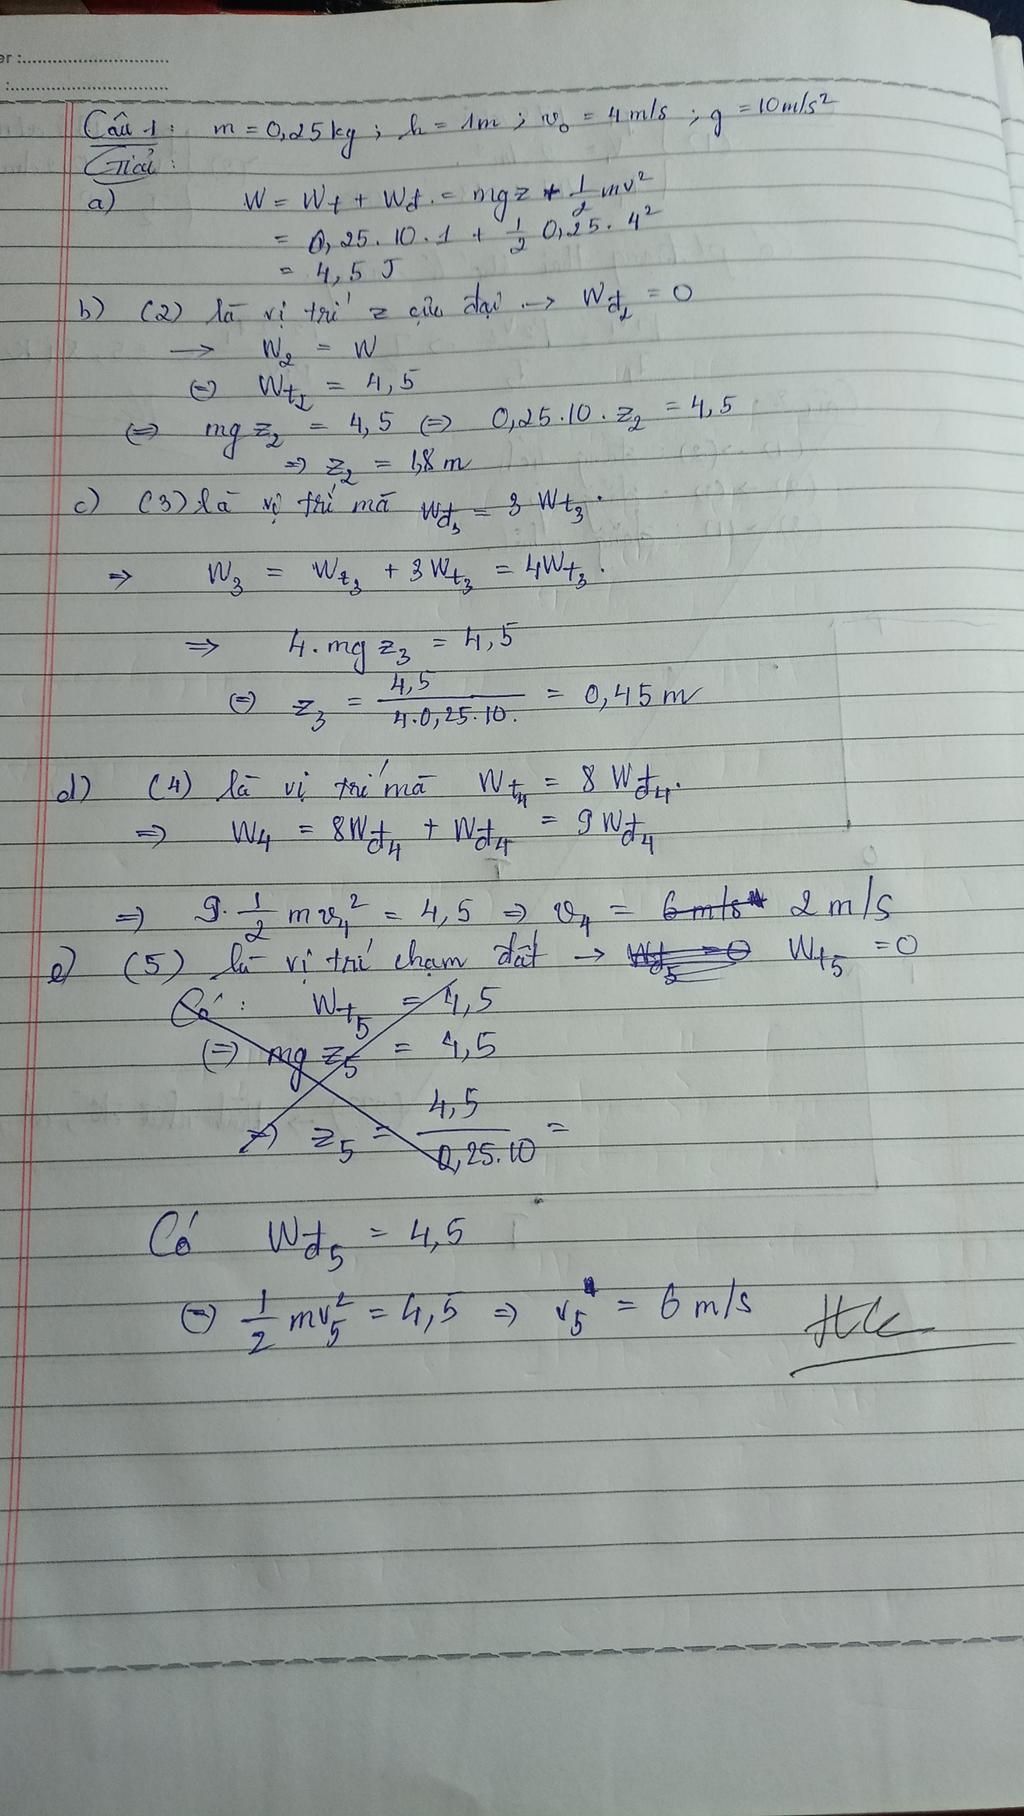 er :..............................
:..............................
Câu 1: m = 0,25kg ; h = 1m ; v₀ = 4m/s ; g = 10m/s²
Giải :
a) W = Wt + Wđ = mgz + 1/2 mv²
= 0,25.10.1 + 1/2 0,25.4²
= 4,5 J
b) (2) là vị trí z cực đại → Wđ₂ = 0
→ W₂ = W
(=) Wt₂ = 4,5
(=) mgz₂ = 4,5 (=) 0,25.10.z₂ = 4,5
=) z₂ = 1,8m
c) (3) là vị trí mà Wđ₃ = 3Wt₃.
=> W₃ = Wt₃ + 3Wt₃ = 4Wt₃.
=> 4.mgz₃ = 4,5
(=) z₃ = 4,5/4.0,25.10. = 0,45m
d) (4) là vị trí mà Wt₄ = 8Wđ₄.
=> W₄ = 8Wđ₄ + Wđ₄ = 9Wđ₄
=) 9.1/2 mv₄² = 4,5 => v₄ = 6m/s 2m/s
e) (5) là vị trí chạm đất → Wđ₅ = 0 Wt₅ = 0
Có : Wt₅ = 4,5
(=) mgz₅ = 4,5
=) z₅ = 4,5/0,25.10 =
Có Wđ₅ = 4,5
(=) 1/2 mv₅² = 4,5 => v₅ = 6m/s